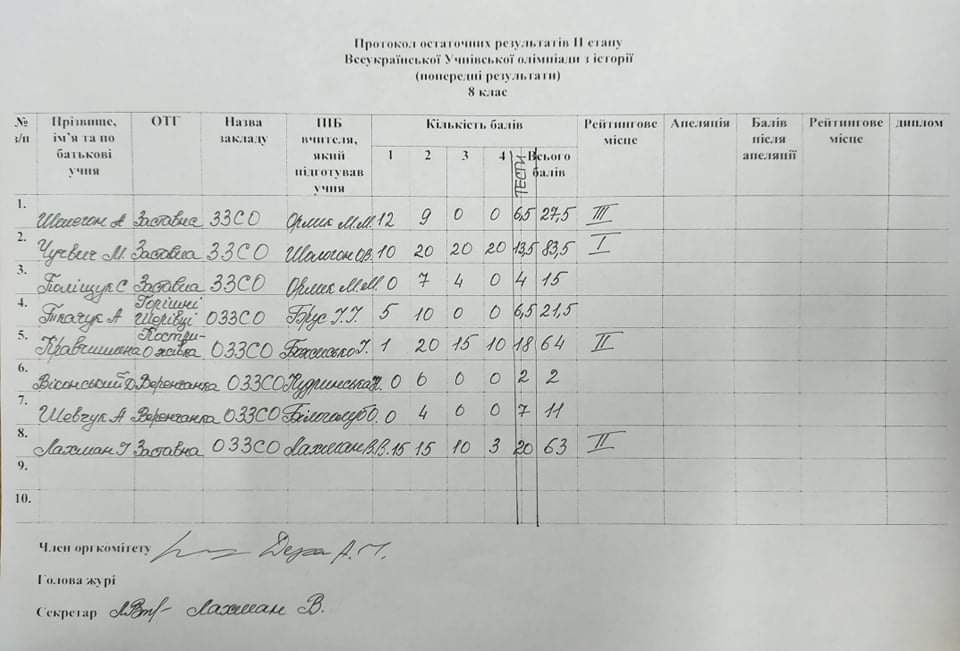 Протокол остаточних результатів ІІ етапу
Всеукраїнської Учнівської олімпіади з історії
(попередні результати)
8 клас
№ з/п Прізвище, ім’я та по батькові учня ОТГ Назва закладу ПІБ вчителя, який підготував учня Кількість балів 1 2 3 4 ТЕСТИ Всього балів Рейтингове місце Апеляція Балів після апеляції Рейтингове місце диплом
1. А Заставна ЗЗСО Орлик М.М. 12 9 0 0 6,5 27,5 III
2. М. Заставна ЗЗСО 10 20 20 20 13,5 83,5 I
3. Поліщук С Заставна ЗЗСО Орлик М.М. 0 7 4 0 4 15
4. Ткачук А Горішні Шерівці ОЗЗСО Брус 5 10 0 0 6,5 21,5
5. Кострижівка ОЗЗСО 1 20 15 10 18 64 II
6. Веренчанка ОЗЗСО 0 0 0 0 2 2
7. Шевчук А Веренчанка ОЗЗСО 0 4 0 0 7 11
8. Лахман Заставна ОЗЗСО Лахман В.В. 15 15 10 3 20 63 II
9.
10.
Член оргкомітету
Голова журі
Секретар Лахман В.